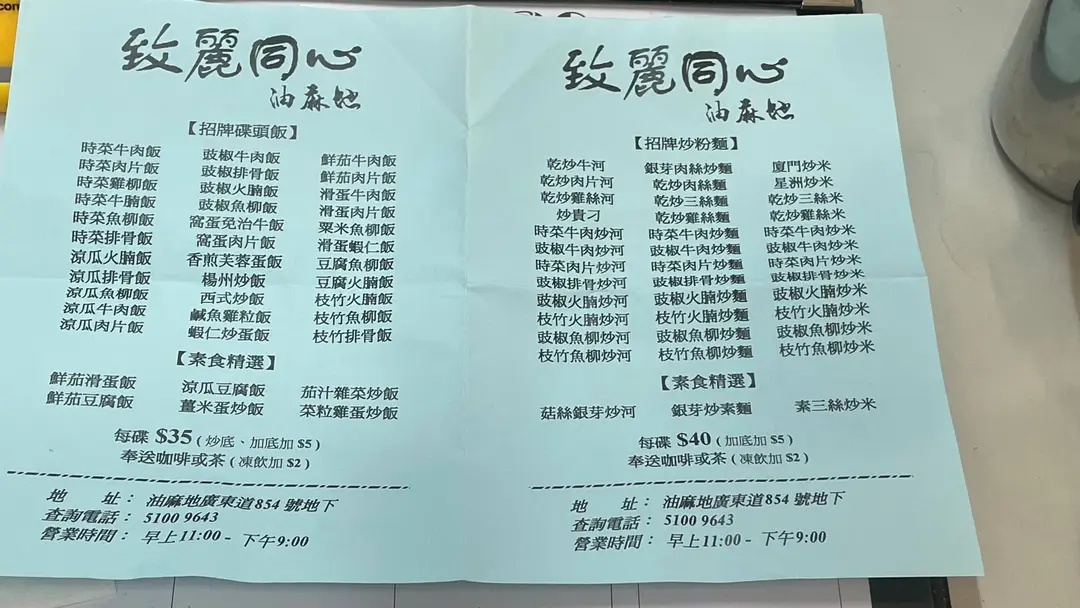 致麗同心
油麻地
【招牌碟頭飯】
時菜牛肉飯 豉椒牛肉飯 鮮茄牛肉飯
時菜肉片飯 豉椒排骨飯 鮮茄肉片飯
時菜雞柳飯 豉椒火腩飯 滑蛋牛肉飯
時菜牛腩飯 豉椒魚柳飯 滑蛋肉片飯
時菜魚柳飯 窩蛋免治牛飯 粟米魚柳飯
時菜排骨飯 窩蛋肉片飯 滑蛋蝦仁飯
涼瓜火腩飯 香煎芙蓉蛋飯 豆腐魚柳飯
涼瓜排骨飯 楊州炒飯 豆腐火腩飯
涼瓜魚柳飯 西式炒飯 枝竹火腩飯
涼瓜牛肉飯 鹹魚雞粒飯 枝竹魚柳飯
涼瓜肉片飯 蝦仁炒蛋飯 枝竹排骨飯
【素食精選】
鮮茄滑蛋飯 涼瓜豆腐飯 茄汁雜菜炒飯
鮮茄豆腐飯 薑米蛋炒飯 菜粒雞蛋炒飯
每碟 $35 ( 炒底、加底加 $5 )
奉送咖啡或茶 ( 凍飲加 $2 )
地 址： 油麻地廣東道854 號地下
查詢電話： 5100 9643
營業時間： 早上11:00 - 下午9:00
致麗同心
油麻地
【招牌炒粉麵】
乾炒牛河 銀芽肉絲炒麵 廈門炒米
乾炒肉片河 乾炒肉絲麵 星洲炒米
乾炒雞絲河 乾炒三絲麵 乾炒三絲米
炒貴刁 乾炒雞絲麵 乾炒雞絲米
時菜牛肉炒河 時菜牛肉炒麵 時菜牛肉炒米
豉椒牛肉炒河 豉椒牛肉炒麵 豉椒牛肉炒米
時菜肉片炒河 時菜肉片炒麵 時菜肉片炒米
豉椒排骨炒河 豉椒排骨炒麵 豉椒排骨炒米
豉椒火腩炒河 豉椒火腩炒麵 豉椒火腩炒米
枝竹火腩炒河 枝竹火腩炒麵 枝竹火腩炒米
豉椒魚柳炒河 豉椒魚柳炒麵 豉椒魚柳炒米
枝竹魚柳炒河 枝竹魚柳炒麵 枝竹魚柳炒米
【素食精選】
菇絲銀芽炒河 銀芽炒素麵 素三絲炒米
每碟 $40 ( 加底加 $5 )
奉送咖啡或茶 ( 凍飲加 $2 )
地 址： 油麻地廣東道854 號地下
查詢電話： 5100 9643
營業時間： 早上11:00 - 下午9:00